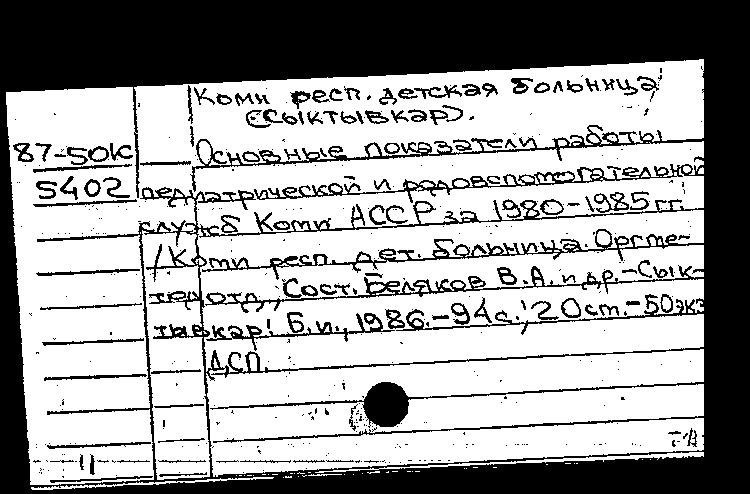 Коми респ. детская больница
(Сыктывкар).
87-50к
5402
Основные показатели работы
педиатрической и родовспомогательной
служб Коми АССР за 1980-1985 гг.
/Коми респ. дет. больница. Оргме-
тодотд.; Сост. Беляков В.А. и др.-Сык-
тывкар: Б.и., 1986.-94с.; 20 см.-50 экз
ДСП.
11